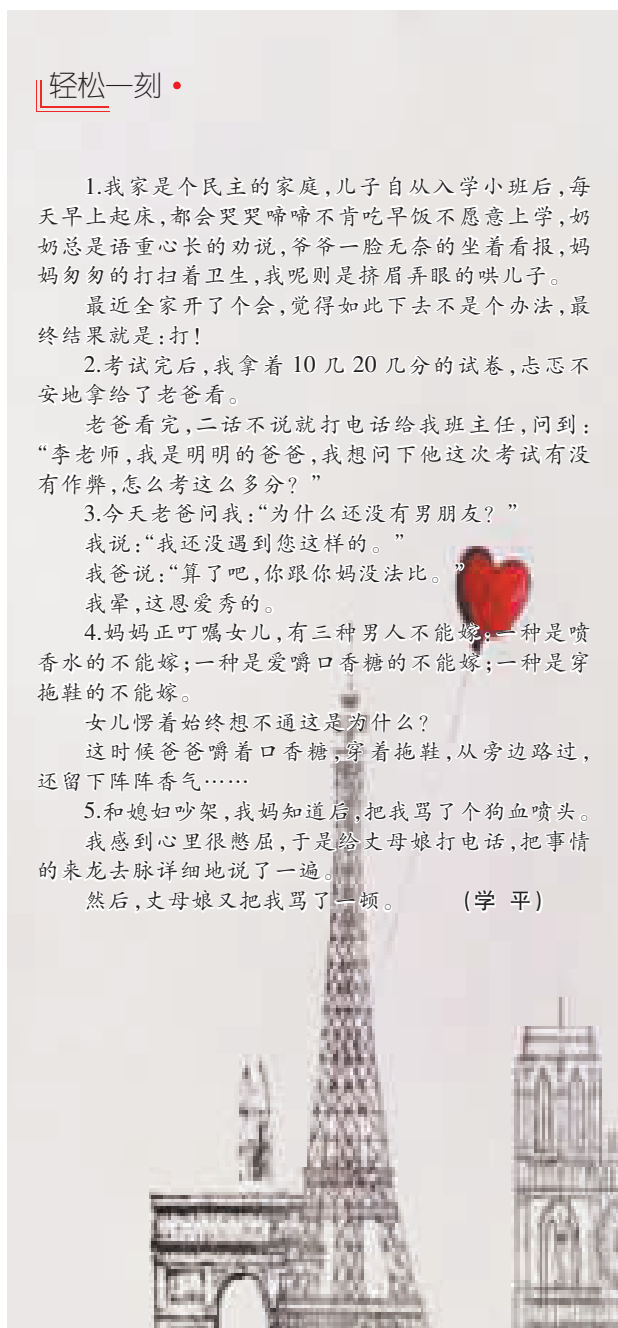 轻松一刻
1.我家是个民主的家庭,儿子自从入学小班后,每
天早上起床,都会哭哭啼啼不肯吃早饭不愿意上学,奶
奶总是语重心长的劝说,爷爷一脸无奈的坐着看报,妈
妈匆匆的打扫着卫生,我呢则是挤眉弄眼的哄儿子。
最近全家开了个会,觉得如此下去不是个办法,最
终结果就是:打!
2.考试完后,我拿着 10 几 20 几分的试卷,忐忑不
安地拿给了老爸看。
老爸看完,二话不说就打电话给我班主任,问到:
“李老师,我是明明的爸爸,我想问下他这次考试有没
有作弊,怎么考这么多分？”
3.今天老爸问我:“为什么还没有男朋友？”
我说:“我还没遇到您这样的。”
我爸说:“算了吧,你跟你妈没法比。”
我晕,这恩爱秀的。
4.妈妈正叮嘱女儿,有三种男人不能嫁:一种是喷
香水的不能嫁;一种是爱嚼口香糖的不能嫁;一种是穿
拖鞋的不能嫁。
女儿愣着始终想不通这是为什么？
这时候爸爸嚼着口香糖,穿着拖鞋,从旁边路过,
还留下阵阵香气……
5.和媳妇吵架,我妈知道后,把我骂了个狗血喷头。
我感到心里很憋屈,于是给丈母娘打电话,把事情
的来龙去脉详细地说了一遍。
然后,丈母娘又把我骂了一顿。 (学 平)